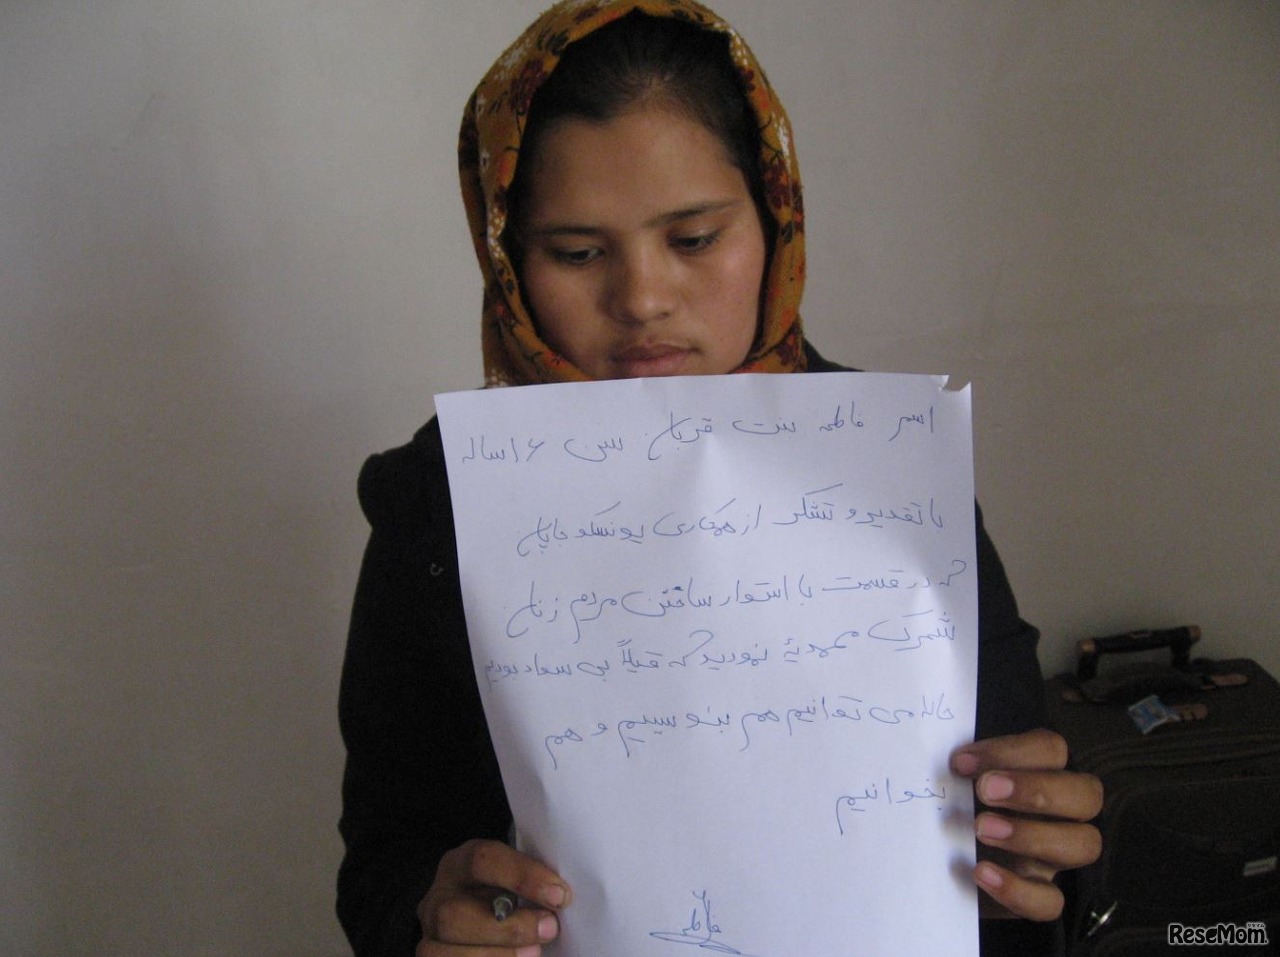 اسم فاطمه بنت قربان سن ۱۶ ساله
با تقدیر و تشکر از همکاری یونسکو جاپان
که در قسمت با استوار ساختن مردم زنان
شهرک مهدیۀ نمودید که قبلاً بی سواد بودیم
حالا می توانیم هم بنویسیم و هم
بخوانیم
فاطمه
ReseMom